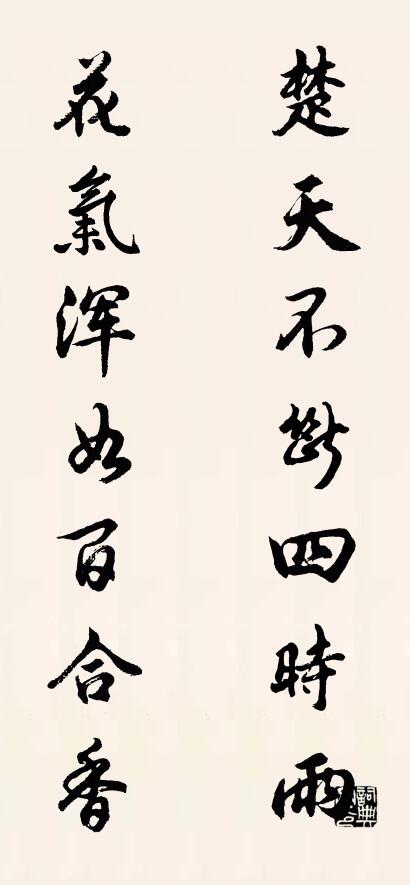 楚天不斷四時雨
花氣渾如百合香
詞典